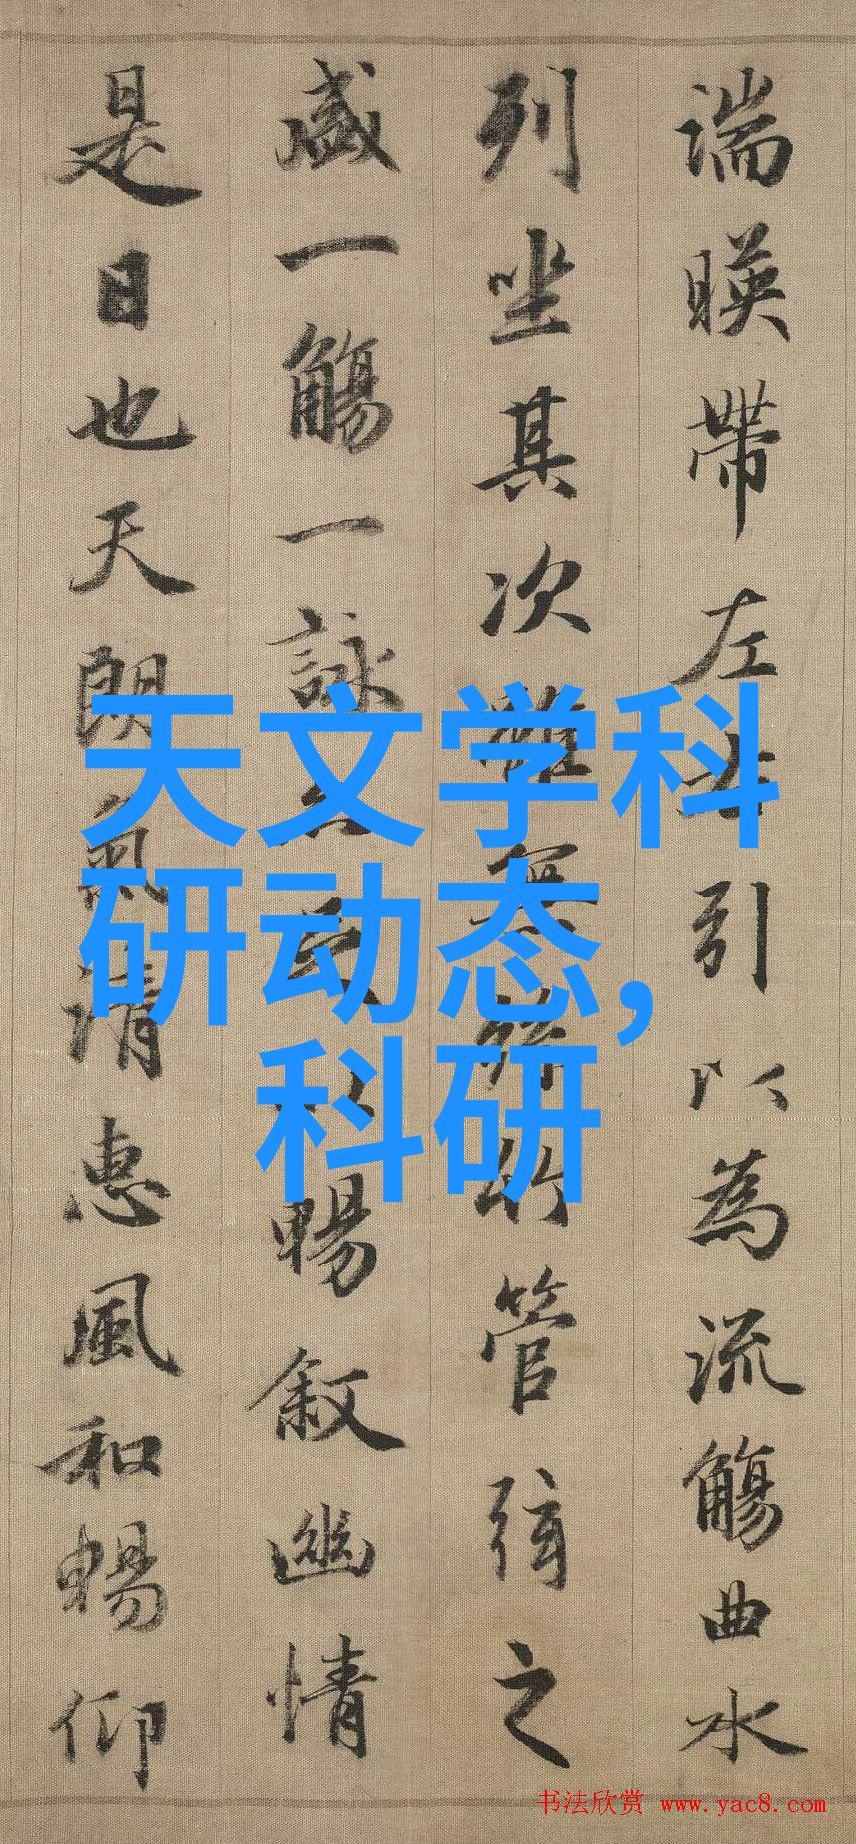 湍暎帶左右引以為流觴曲水
列坐其次雖無絲竹管弦之
盛一觴一詠亦足以暢叙幽情
是日也天朗氣清惠風和暢仰
天文学科
研动态,
科研
书法欣赏 www.yac8.com